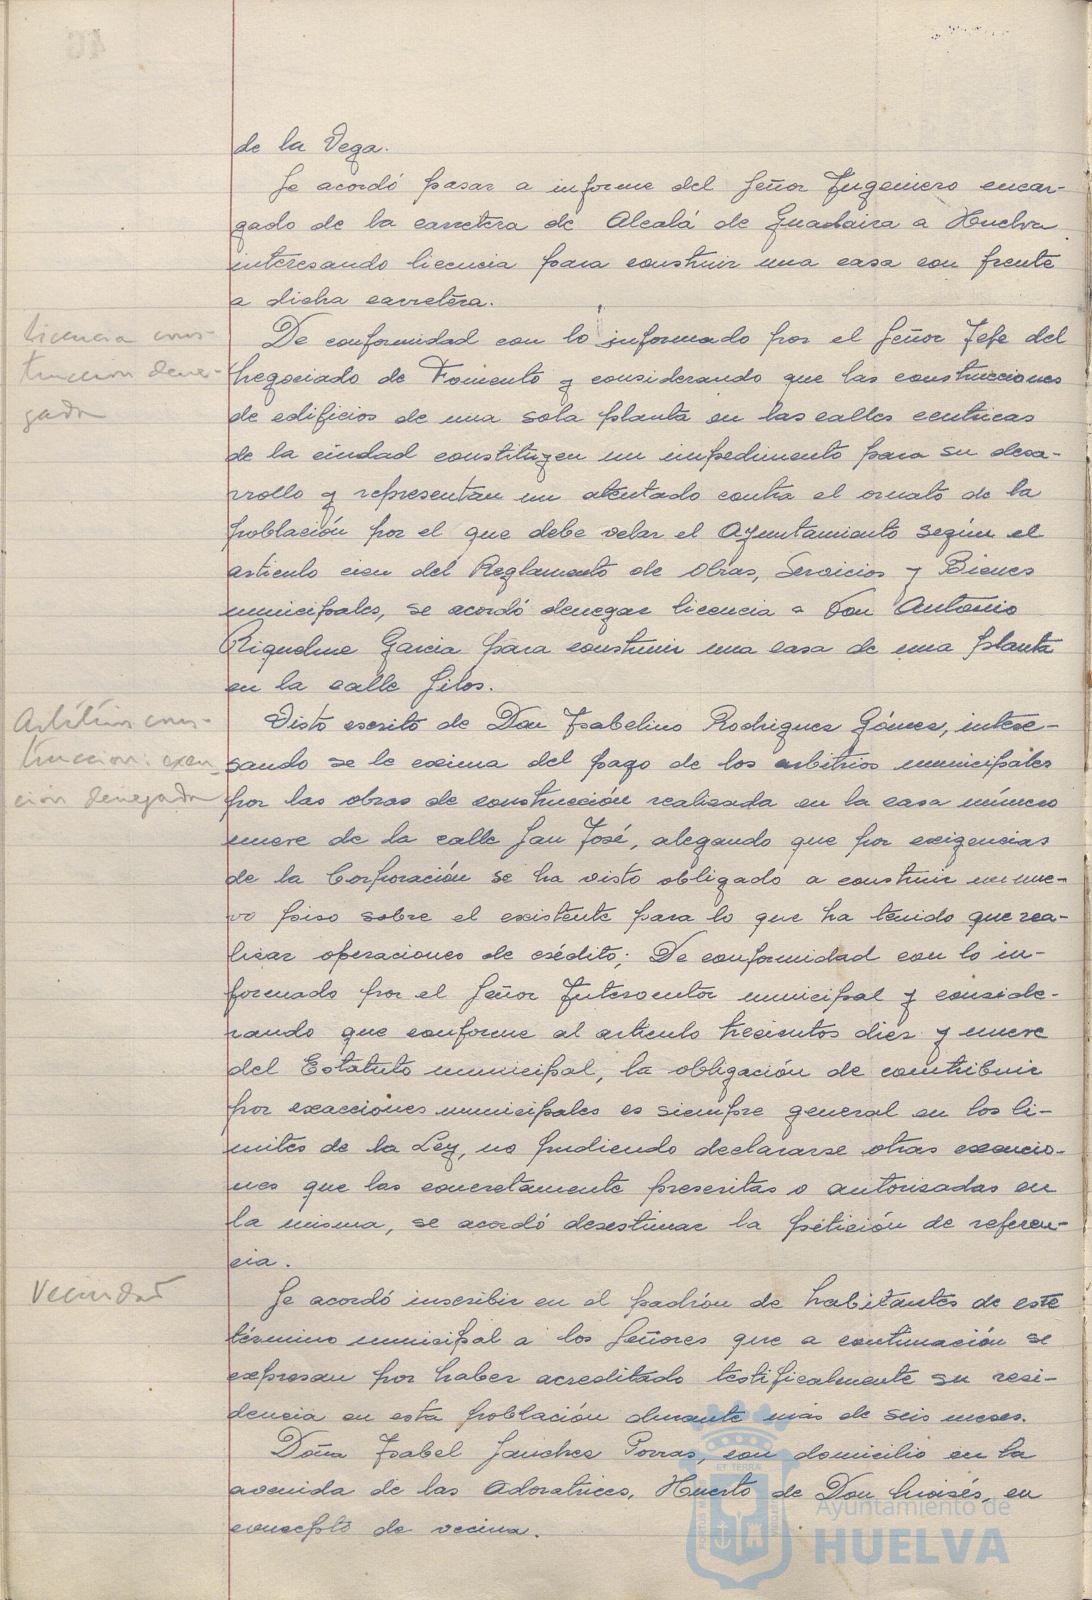 de la Vega.
Se acordó pasar a informe del Señor Ingeniero encar-
gado de la carretera de Alcalá de Guadaira a Huelva
interesando licencia para construir una casa con frente
a dicha carretera.
Licencia cons-
trucción dene-
gada
De conformidad con lo informado por el Señor Jefe del
Negociado de Fomento y considerando que las construcciones
de edificios de una sola planta en las calles centricas
de la ciudad constituyen un impedimento para su desa-
rrollo y representan un atentado contra el ornato de la
población por el que debe velar el Ayuntamiento según el
articulo cien del Reglamento de Obras, Servicios y Bienes
municipales, se acordó denegar licencia a Don Antonio
Riquelme Garcia para construir una casa de una planta
en la calle Silos.
Arbitrios cons-
trucción. exen-
ción denegada
Visto escrito de Don Isabelino Rodriguez Gómez, intere-
sando se le exima del pago de los arbitrios municipales
por las obras de construcción realizada en la casa número
nueve de la calle San José, alegando que por exigencias
de la Corporación se ha visto obligado a construir un nue-
vo piso sobre el existente para lo que ha tenido que rea-
lizar operaciones de crédito; De conformidad con lo in-
formado por el Señor Interventor municipal y conside-
rando que conforme al articulo trecientos diez y nueve
del Estatuto municipal, la obligación de contribuir
por exacciones municipales es siempre general en los li-
mites de la Ley, no pudiendo declararse otras exencio-
nes que las concretamente prescritas o autorizadas en
la misma, se acordó desestimar la petición de referen-
cia.
Vecindad
Se acordó inscribir en el padrón de habitantes de este
término municipal a los Señores que a continuación se
expresan por haber acreditado testificalmente su resi-
dencia en esta población durante más de seis meses.
Doña Isabel Sanchez Porras, con domicilio en la
avenida de las Adoratrices, Huerto de Don Moisés, en
concepto de vecina.
Ayuntamiento de
HUELVA